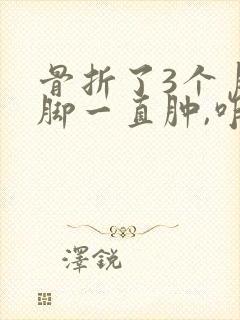 骨折了3个
脚一直肿,
澤銳